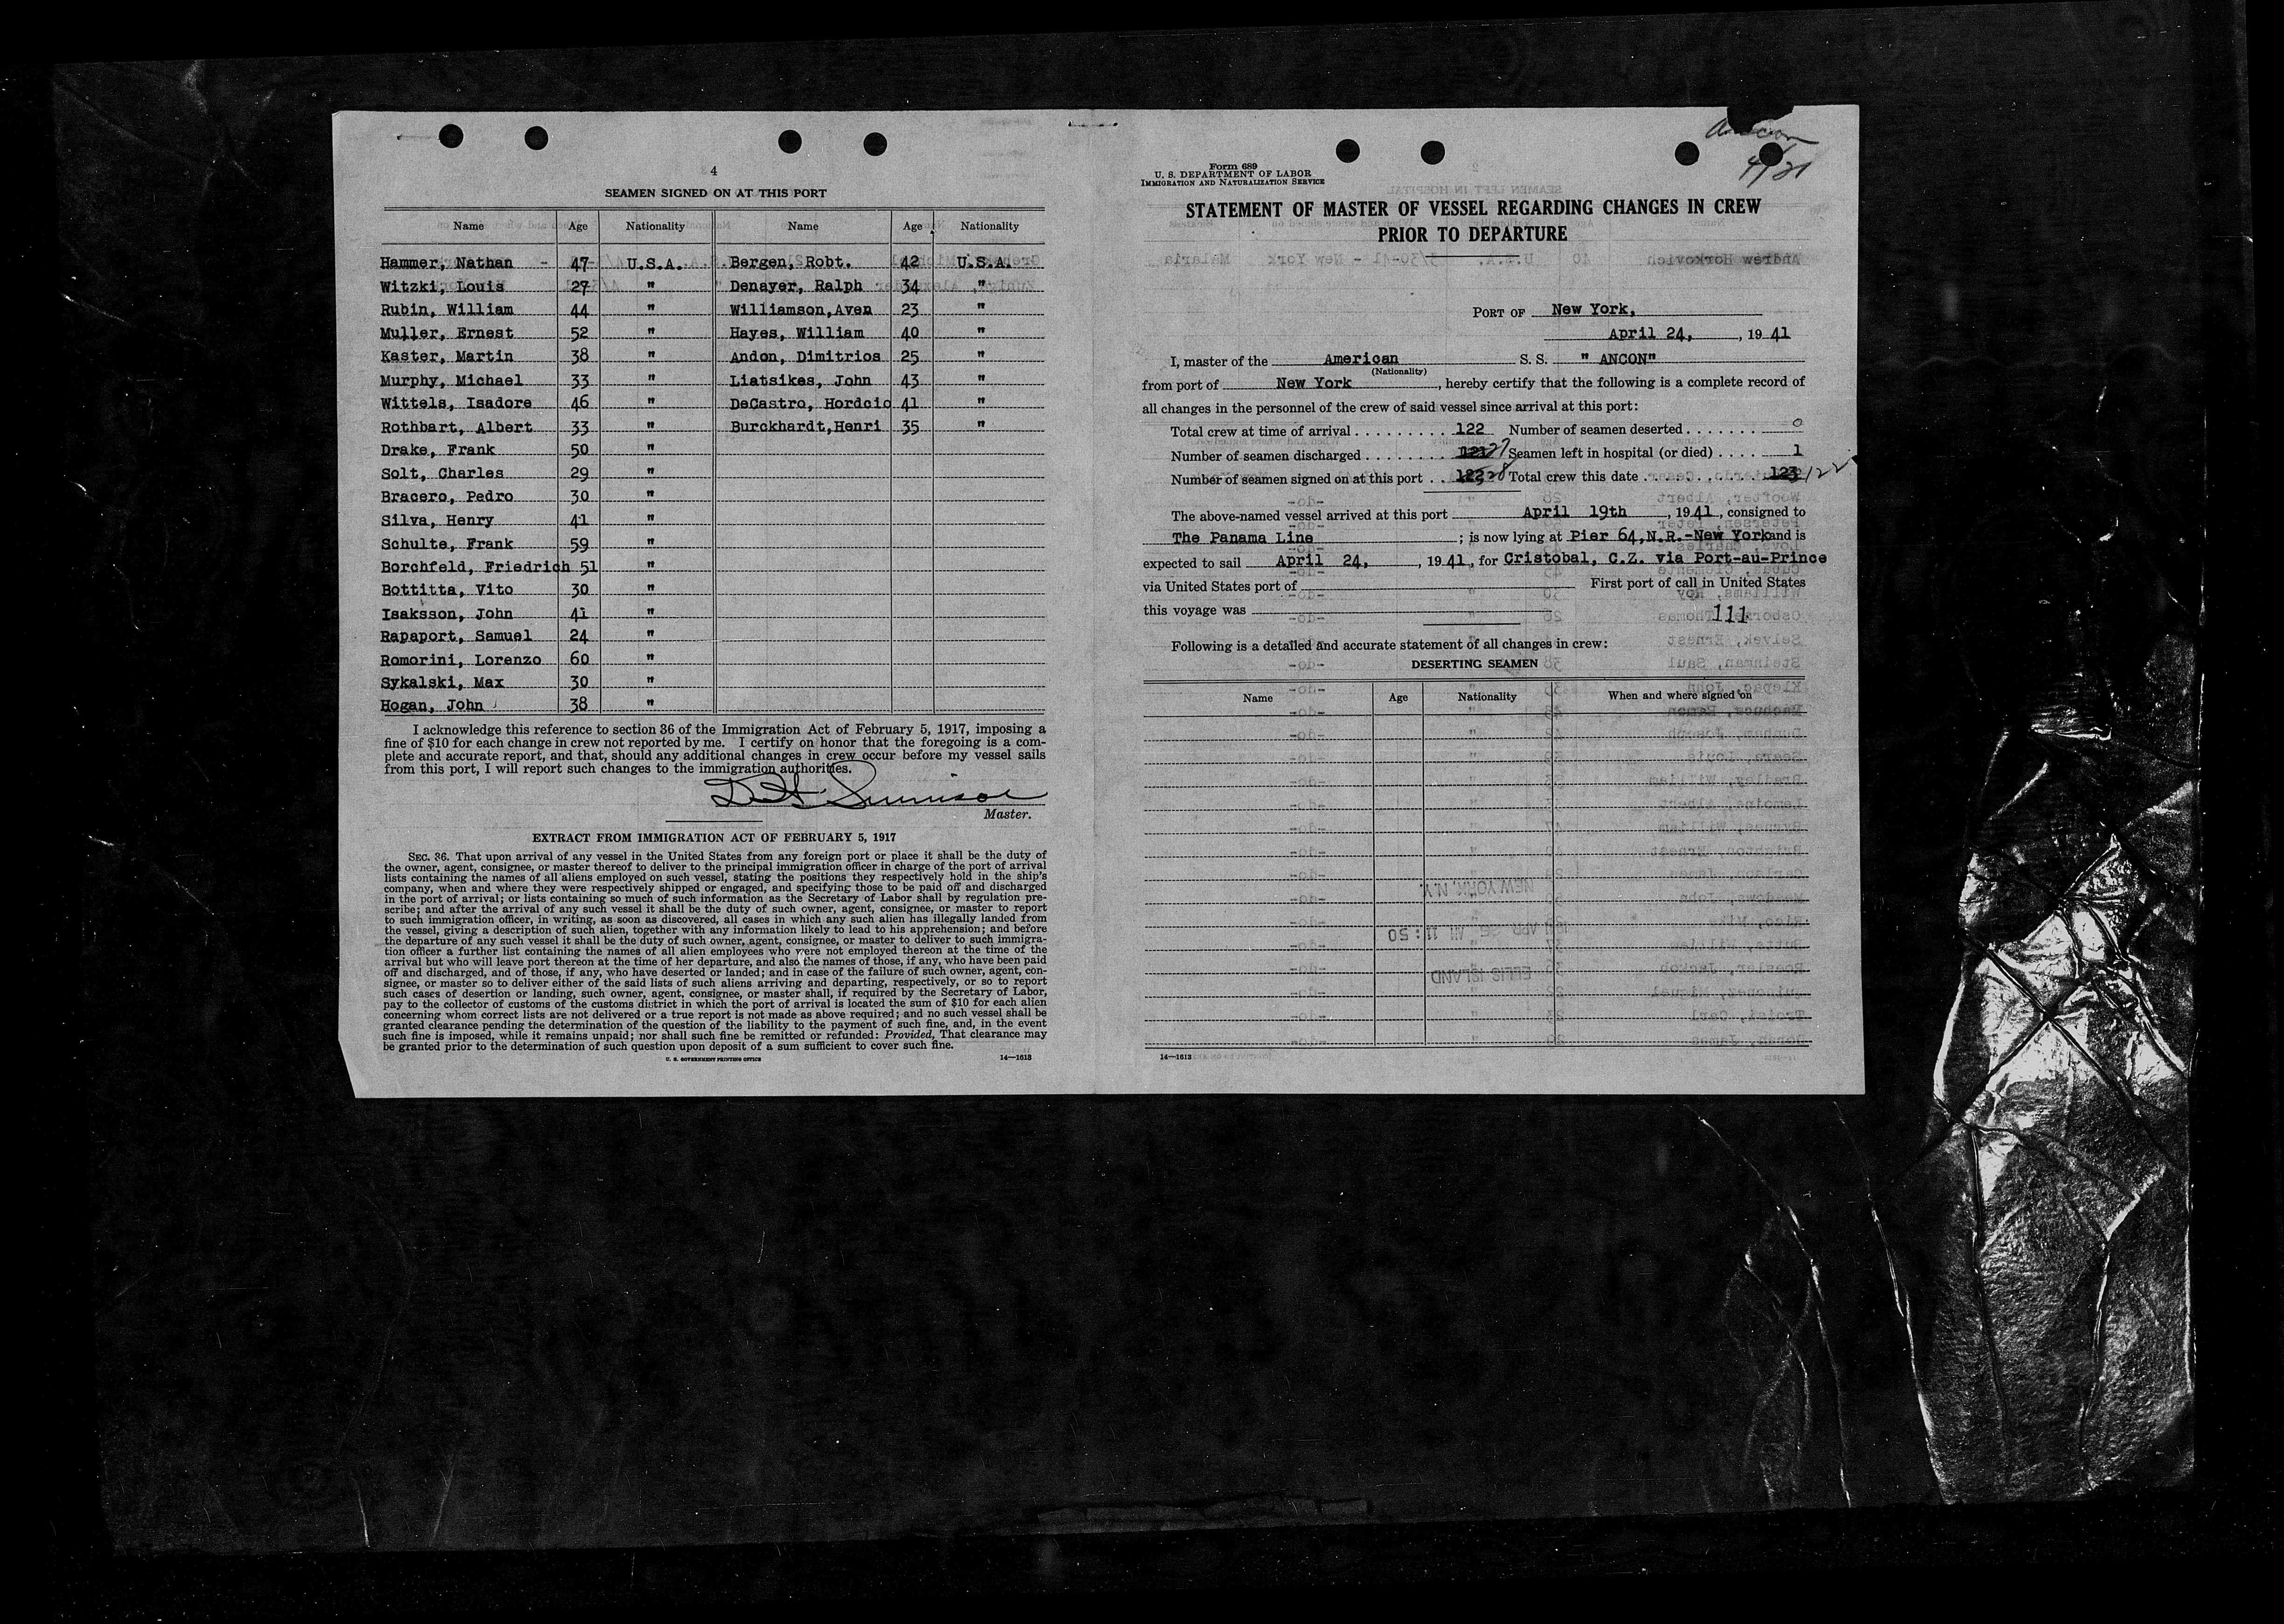 4
SEAMEN SIGNED ON AT THIS PORT
Name Age Nationality Name Age Nationality
Hammer, Nathan - 47 U.S.A. Bergen, Robt. 42 U.S.A.
Witzki, Louis 27 " Denayer, Ralph 34 "
Rubin, William 44 " Williamson,Aven 23 "
Muller, Ernest 52 " Hayes, William 40 "
Kaster, Martin 38 " Andon, Dimitrios 25 "
Murphy, Michael 33 " Liatsikes, John 43 "
Wittels, Isadore 46 " DeCastro, Hordcio 41 "
Rothbart, Albert 33 " Burckhardt,Henri 35 "
Drake, Frank 50 "
Solt, Charles 29 "
Bracero, Pedro 30 "
Silva, Henry 41 "
Schulte, Frank 59 "
Borchfeld, Friedrich 51 "
Bottitta, Vito 30 "
Isaksson, John 41 "
Rapaport, Samuel 24 "
Romorini, Lorenzo 60 "
Sykalski, Max 30 "
Hogan, John 38 "
I acknowledge this reference to section 36 of the Immigration Act of February 5, 1917, imposing a
fine of $10 for each change in crew not reported by me. I certify on honor that the foregoing is a com-
plete and accurate report, and that, should any additional changes in crew occur before my vessel sails
from this port, I will report such changes to the immigration authorities.
Master.
EXTRACT FROM IMMIGRATION ACT OF FEBRUARY 5, 1917
SEC. 36. That upon arrival of any vessel in the United States from any foreign port or place it shall be the duty of
the owner, agent, consignee, or master thereof to deliver to the principal immigration officer in charge of the port of arrival
lists containing the names of all aliens employed on such vessel, stating the positions they respectively hold in the ship's
company, when and where they were respectively shipped or engaged, and specifying those to be paid off and discharged
in the port of arrival; or lists containing so much of such information as the Secretary of Labor shall by regulation pre-
scribe; and after the arrival of any such vessel it shall be the duty of such owner, agent, consignee, or master to report
to such immigration officer, in writing, as soon as discovered, all cases in which any such alien has illegally landed from
the vessel, giving a description of such alien, together with any information likely to lead to his apprehension; and before
the departure of any such vessel it shall be the duty of such owner, agent, consignee, or master to deliver to such immigra-
tion officer a further list containing the names of all alien employees who were not employed thereon at the time of the
arrival but who will leave port thereon at the time of her departure, and also the names of those, if any, who have been paid
off and discharged, and of those, if any, who have deserted or landed; and in case of the failure of such owner, agent, con-
signee, or master so to deliver either of the said lists of such aliens arriving and departing, respectively, or so to report
such cases of desertion or landing, such owner, agent, consignee, or master shall, if required by the Secretary of Labor,
pay to the collector of customs of the customs district in which the port of arrival is located the sum of $10 for each alien
concerning whom correct lists are not delivered or a true report is not made as above required; and no such vessel shall be
granted clearance pending the determination of the question of the liability to the payment of such fine, and, in the event
such fine is imposed, while it remains unpaid; nor shall such fine be remitted or refunded: Provided, That clearance may
be granted prior to the determination of such question upon deposit of a sum sufficient to cover such fine.
U. S. GOVERNMENT PRINTING OFFICE 14—1613
Ancon
4/21
Form 689
U. S. DEPARTMENT OF LABOR
IMMIGRATION AND NATURALIZATION SERVICE
STATEMENT OF MASTER OF VESSEL REGARDING CHANGES IN CREW
PRIOR TO DEPARTURE
PORT OF New York,
April 24, , 19 41
I, master of the American S. S. " ANCON"
(Nationality)
from port of New York , hereby certify that the following is a complete record of
all changes in the personnel of the crew of said vessel since arrival at this port:
Total crew at time of arrival . . . . . . . . . 122 Number of seamen deserted . . . . . . . 0
Number of seamen discharged . . . . . . . . 121 27 Seamen left in hospital (or died) . . . . 1
Number of seamen signed on at this port . . 122 28 Total crew this date . . . . . . . . . . . 123 122
The above-named vessel arrived at this port April 19th , 19 41 , consigned to
The Panama Line ; is now lying at Pier 64,N.R.-New York and is
expected to sail April 24, , 19 41 , for Cristobal, C.Z. via Port-au-Prince
via United States port of First port of call in United States
this voyage was 111
Following is a detailed and accurate statement of all changes in crew:
DESERTING SEAMEN
Name Age Nationality When and where signed on
14—1613